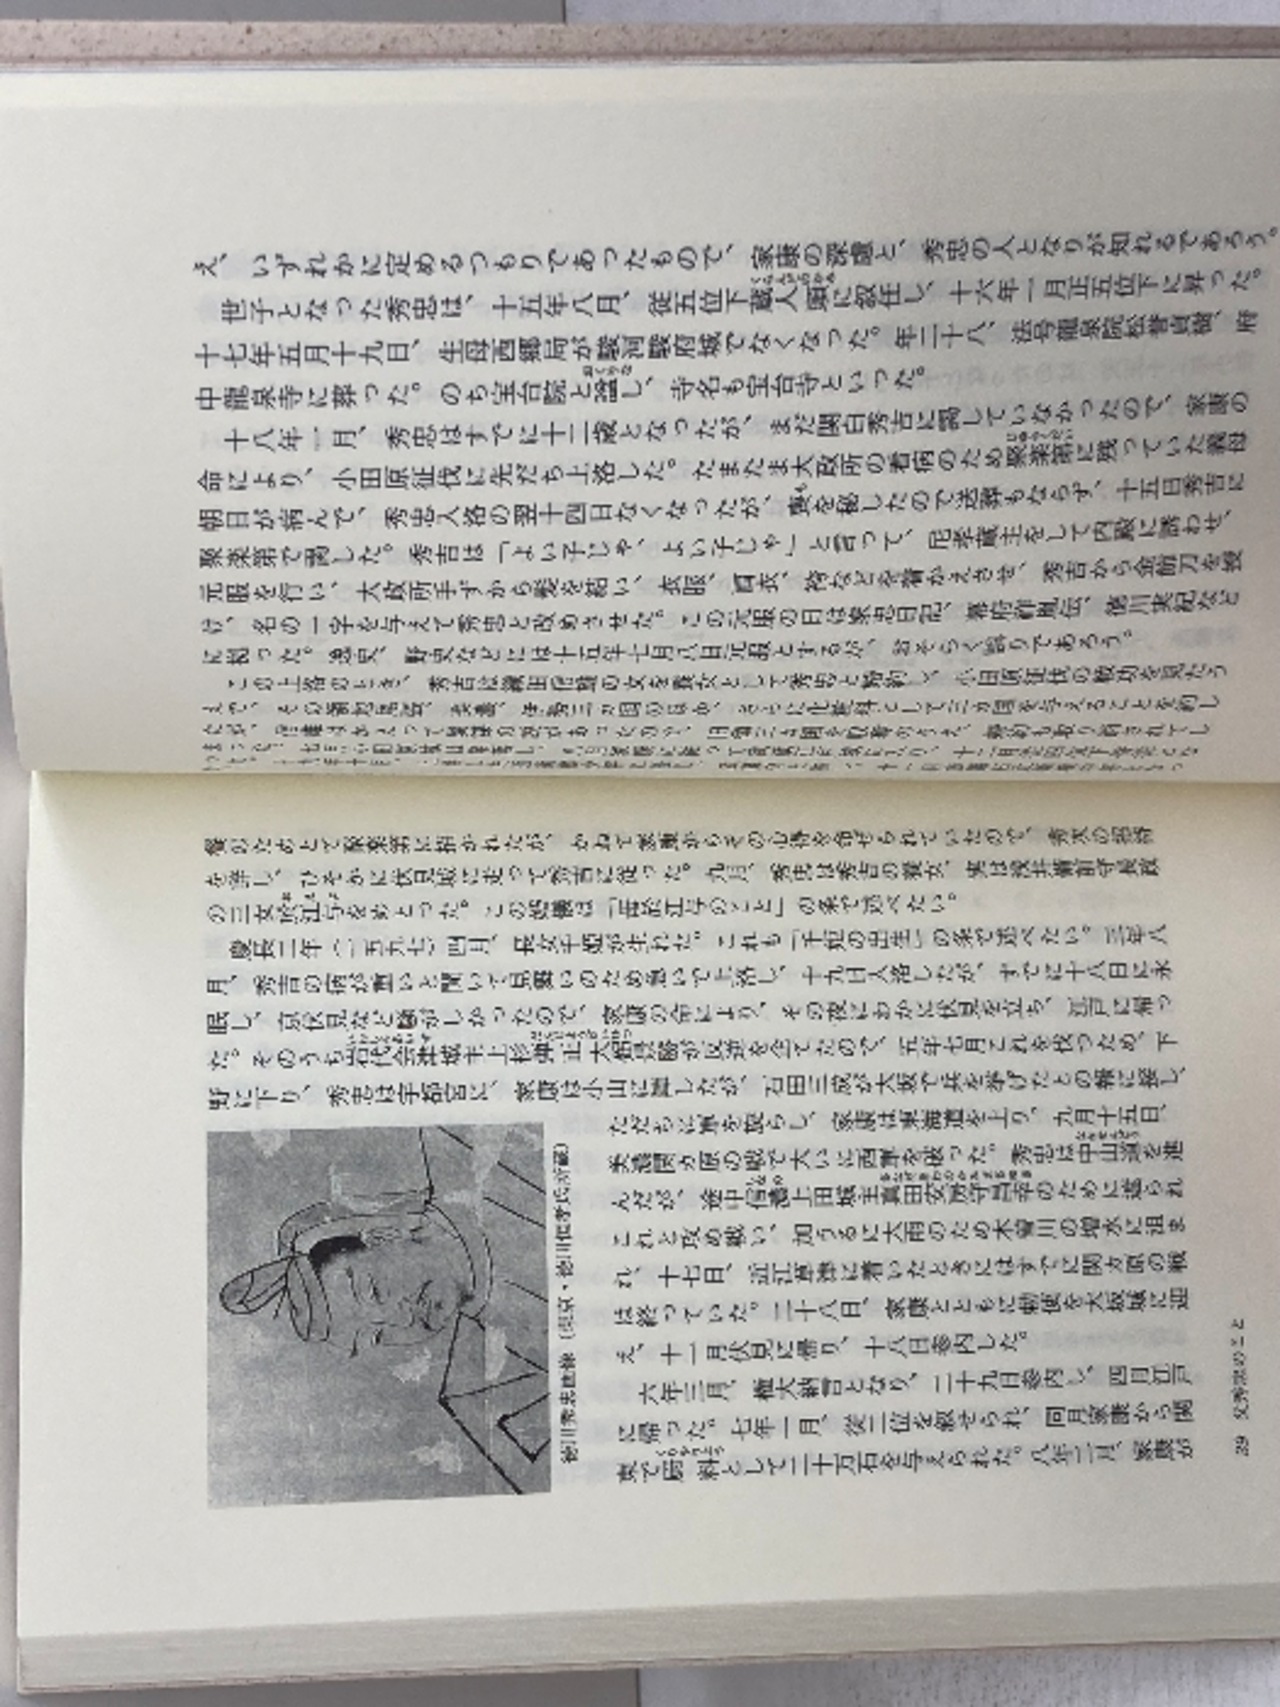 え、いずれかに定めるつもりであったもので、家康の深慮と、秀忠の人となりが知れるであろう。
世子となった秀忠は、十五年八月、従五位下蔵人頭に叙任し、十六年一月正五位下に昇った。
十七年五月十九日、生母西郷局が駿河駿府城でなくなった。年二十八、法号龍泉院松誉貞樹、府
中龍泉寺に葬った。のち宝台院と諡し、寺名も宝台寺といった。
十八年一月、秀忠はすでに十二歳となったが、まだ関白秀吉に謁していなかったので、家康の
命により、小田原征伐に先だち上洛した。たまたま大政所の看病のため聚楽第に残っていた義母
朝日が病んで、秀忠入洛の翌十四日なくなったが、喪を秘したので送葬もならず、十五日秀吉に
聚楽第で謁した。秀吉は「よい子じゃ、よい子じゃ」と言って、尼孝蔵主をして内殿に誘わせ、
元服を行い、大政所手ずから髪を結い、衣服、肩衣、袴などを着かえさせ、秀吉から金飾刀を授
け、名の一字を与えて秀忠と改めさせた。この元服の日は家忠日記、幕府祚胤伝、徳川実紀など
に拠った。逸史、野史などには十五年七月八日元服とするが、おそらく誤りであろう。
この上洛のとき、秀吉は織田信雄の女を養女として秀忠と婚約し、小田原征伐の
を与えることを約し
を詳し、ひそかに伏見城に走って秀吉に従った。九月、秀忠は秀吉の養女、実は浅井備前守長政
の三女於江与をめとった。この婚儀は「母於江与のこと」の条で述べたい。
慶長二年（一五九七）四月、長女千姫が生れた。これも「千姫の出生」の条で述べたい。三年八
月、秀吉の病が重いと聞いて見舞いのため急いで上洛し、十九日入洛したが、すでに十八日に永
眠し、京伏見など騒がしかったので、家康の命により、その夜にわかに伏見を立ち、江戸に帰っ
た。そのうち岩代会津城主上杉弾正大弼景勝が反逆を企てたので、五年七月これを伐つため、下
野に下り、秀忠は宇都宮に、家康は小山に陣したが、石田三成が大坂で兵を挙げたとの報に接し、
ただちに軍を反らし、家康は東海道を上り、九月十五日、
美濃関ヶ原の戦で大いに西軍を破った。秀忠は中山道を進
んだが、途中信濃上田城主真田安房守昌幸のために遮られ
これと攻め戦い、加うるに大雨のため木曾川の増水に阻ま
れ、十七日、近江草津に着いたときにはすでに関ヶ原の戦
は終っていた。二十八日、家康とともに勅使を大坂城に迎
え、十一月伏見に帰り、十八日参内した。
六年三月、権大納言となり、二十九日参内し、四月江戸
に帰った。七年一月、従二位を叙せられ、同月家康から関
東で厨料として二十万石を与えられた。八年二月、家康が
徳川秀忠画像（東京・徳川恒孝氏所蔵）
29 父秀忠のこと